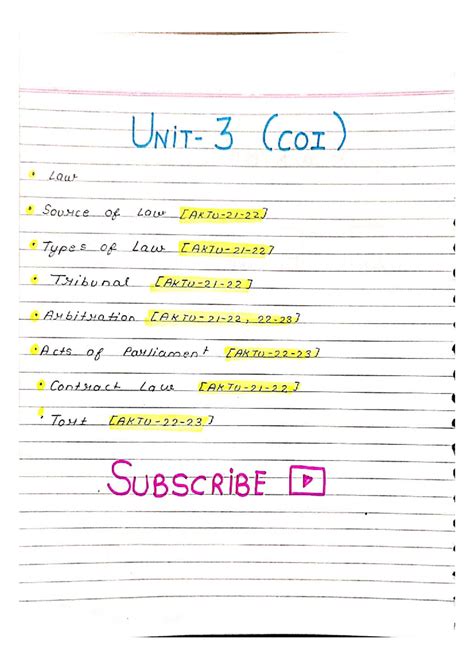 UNIT-3 (COI)
• Law
• Source of Law [AKTU-21-22]
• Types of Law [AKTU-21-22]
• Tribunal [AKTU-21-22]
• Arbitration [AKTU-21-22, 22-23]
• Acts of Parliament [AKTU-22-23]
• Contract Law [AKTU-21-22]
• Tort [AKTU-22-23]
SUBSCRIBE